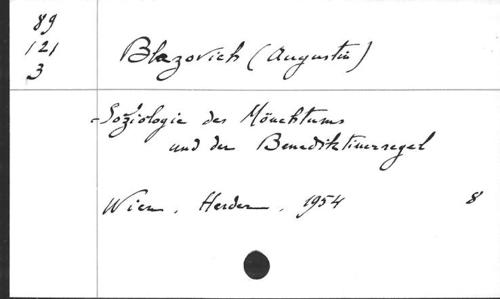 89
121
3
Blazovich (Augustin)
- Soziologie des Mönchtums
und der Benediktinerregel
Wien, Herder, 1954 8